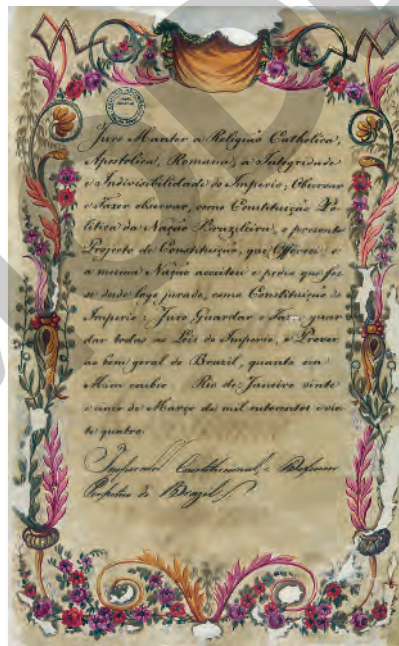 Juro Manter a Religião Catholica,
Apostolica, Romana, a Integridade
e Indivisibilidade do Imperio; Observar
e Fazer observar, como Constituição Po
litica da Nação Brazileira, o presente
Projecto de Constituição, que Offereci, e
a mesma Nação acceitou e pedio que fos
se desde logo jurado, como Constituição do
Imperio: Juro Guardar e Fazer guar
dar todas as Leis do Imperio, e Prover
ao bem geral do Brazil, quanto em
Mim couber Rio de Janeiro vinte
e cinco de Março de mil oitocentos e vin
te quatro.
Imperador Constitucional, e Defensor
Perpetuo do Brazil